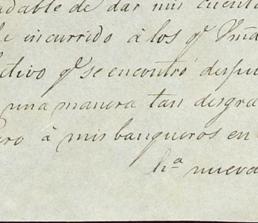 adable de dar mis cuenta
incurrido á los qe Vmd
ctivo qe se encontró despu
una manera tan desgra
ero á mis banqueros en
hª nueva